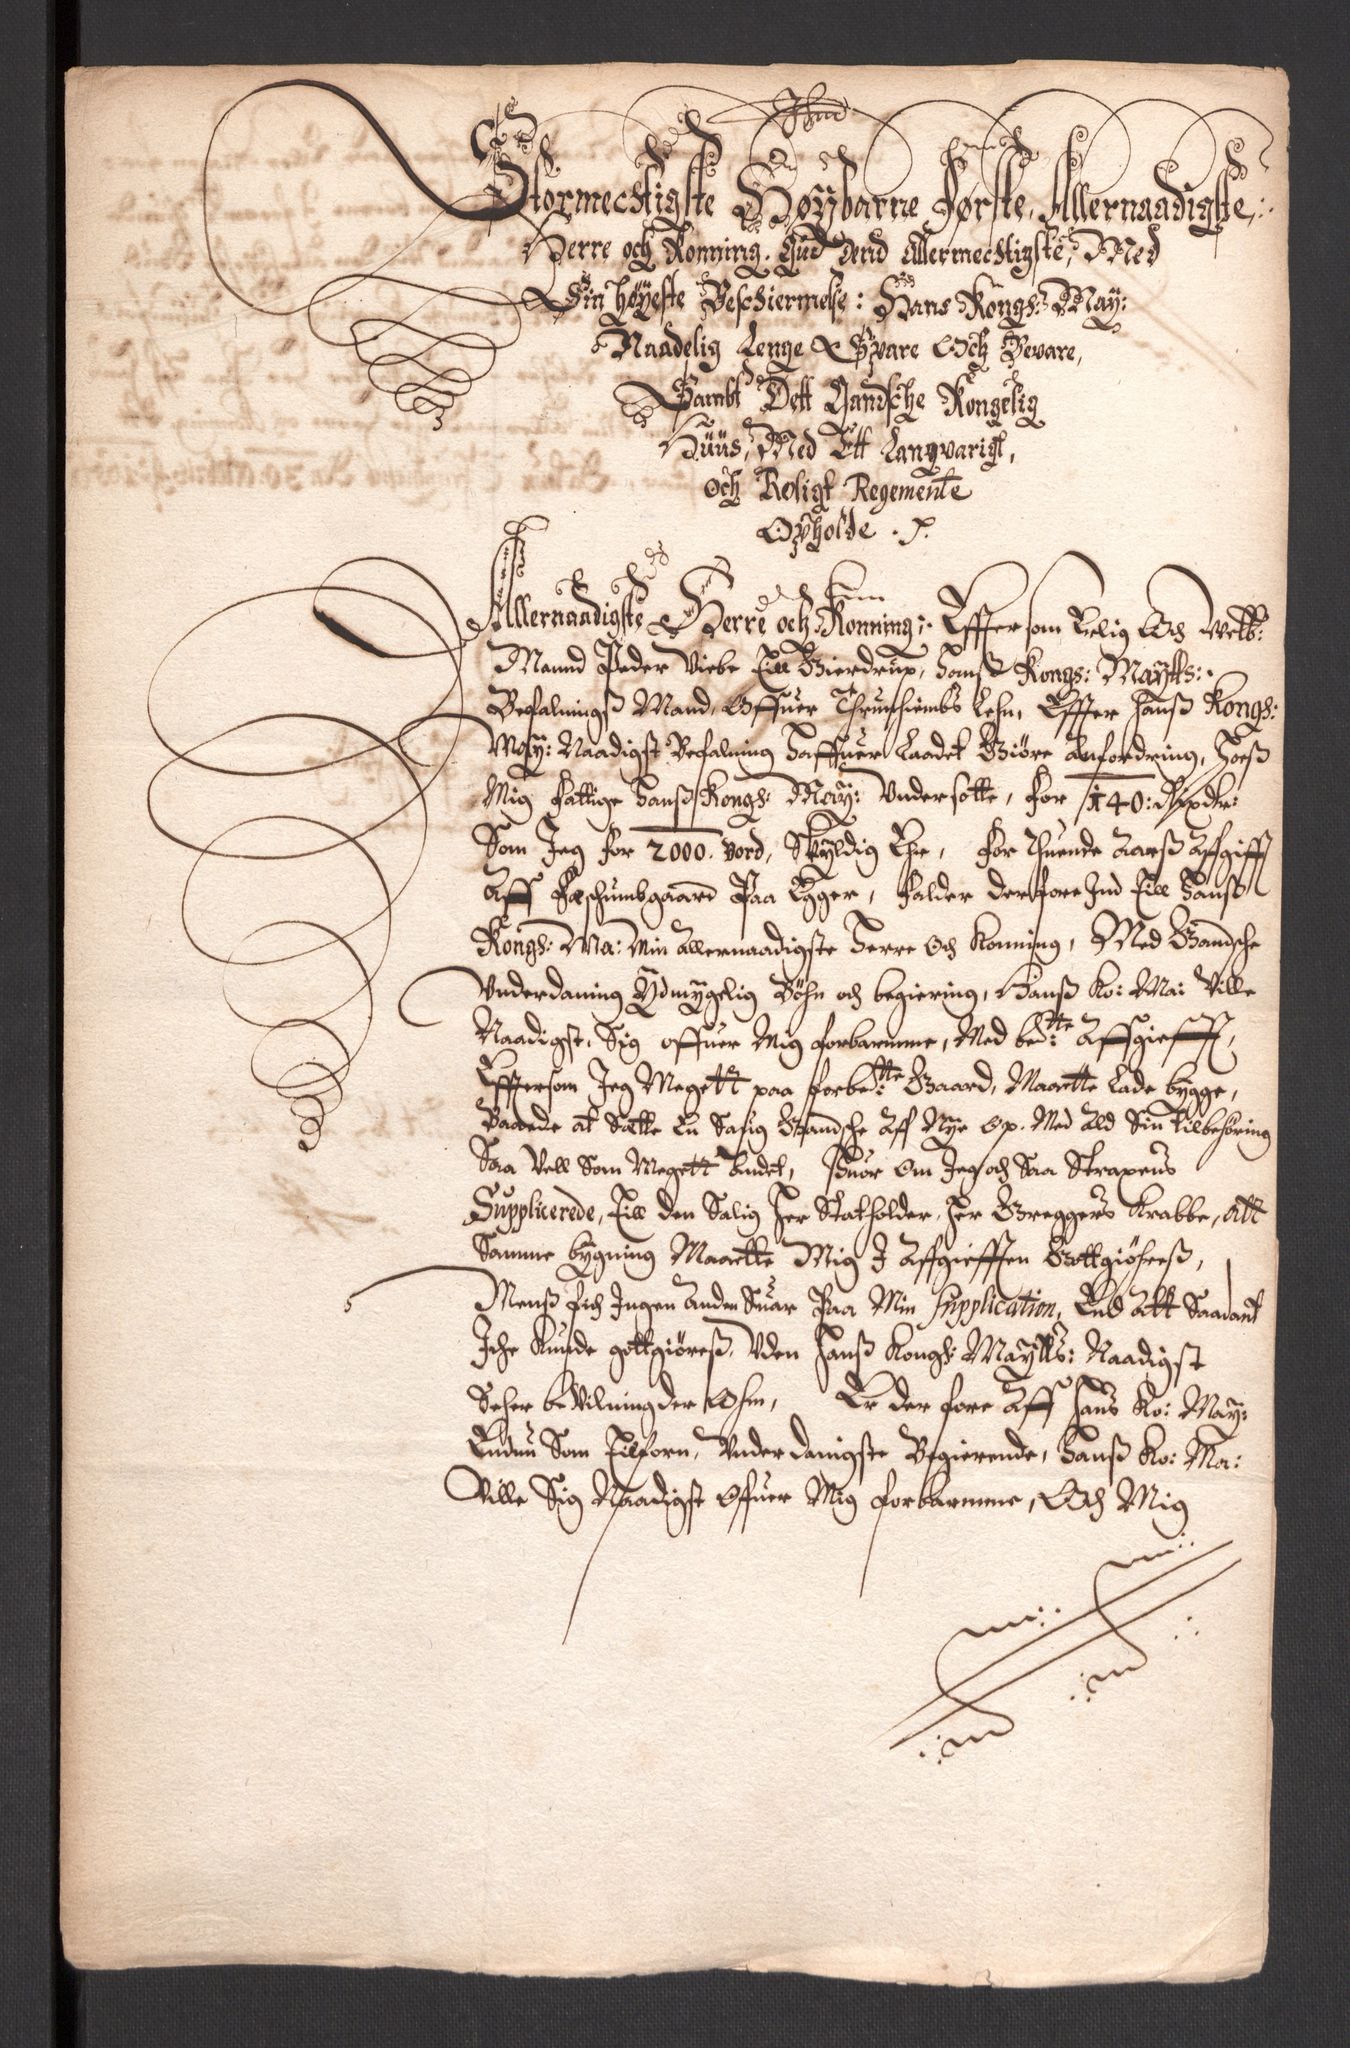 Stormechtigste Høybarne Første, Allernaadigste,
Herre och Konning. Gud Dend Allermechtigste, Med
Sin høyeste Beschiermelse: Hans Kongs: May:
Naadelig Lenge Spare Och Bevare,
Sambt Dett Gandsche Kongelig
Huus, Med Ett Langvarigt,
och Roligt Regemente
Opholde
Allernaadigste Herre och Konning, Effter som Erlig Och Welb:
Mannd Peder Viebe till Gierdrup, Hanß Kongs: Maytts:
Befalnings Mand, Offuer Thrunhiembs Lehn, Effter hanß Kongs:
May: Naadigst Befalning Haffuer Laadet Giöre Anfordring, Hoeß
Mig fattige Hanß Kongs: May: Undersotte, for 140: Rixdlr:
Som Jeg for 2000. bord, Skyldig Ehr, for thuende Aarß Afgifft
Aff gaard Paa Egger, falder derfore Ind till Hanß
Kongs: Ma: Min Allernaadigste Herre Och Konning, Med Gandsche
Underdaning Ydmygelig Böhn och begiering, Hanß Ko: Ma: Ville
Naadigst, Sig offuer Mig forbarmme, Med bete: Affgiefft,
Efftersom Jeg Megett paa forbete: Gaard, Maatte Lade bygge,
Baade at Sette En Saug Gandsche Aff Nye Op. Med Ald Sin tilbehöring
Saa Vell Som Megett Andet, Huor Om Jeg och Saa Straxens
Supplicerede, till den Salig Her Statholder, Her Greggers Krabbe, Att
Samme bygning Maatte Mig I Affgifften Gottgiöreß,
Menß fich Ingen Anden Suar Paa Min Supplication, End Att Saadant
Iche Kunde gottgiöreß, Uden Hanß Kongs: Maytts: Naadigst
beVilning der Ohm, Er der fore Aff Hans Ko: May:
Endnu Som tilforn, Underdanigste Begierende, Hanß Ko: Ma:
Ville Sig Naadigst Offuer Mig forbarmme, Och Mig